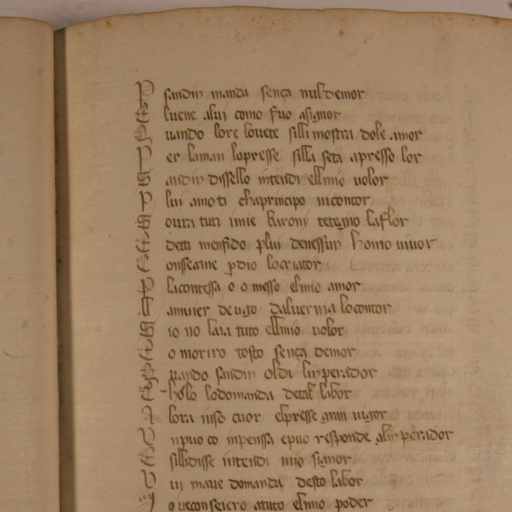 P sandin manda sença nul demor
E luene alui como suo asignor
Q uando lore louete silli mostra dole amor
P er laman lopresse silla seta apresso lor
S andin dissello intendi ellmio uolor
P lui amoti chaprincipo uicontor
S oura tuti imie baroni tetegno laflor
E detti menfido plui denessun homo uiuor
C onsecame p dio locriator
P lacontessa o o messo elmio amor
R amiuer deugo daluernia locontor
S io no laia tuto ellmio uolor
E o moriro tosto sença demor
Q uando sandin oldi limperador
C holo lodomanda de tal labor
A lora inso cuor elpresse gran uigor
U npuo co inpenssa epuo responde alinperador
E sillidisse intendi mio signor
U ui maue domanda desto labor
oueconseiero atuto elmio poder